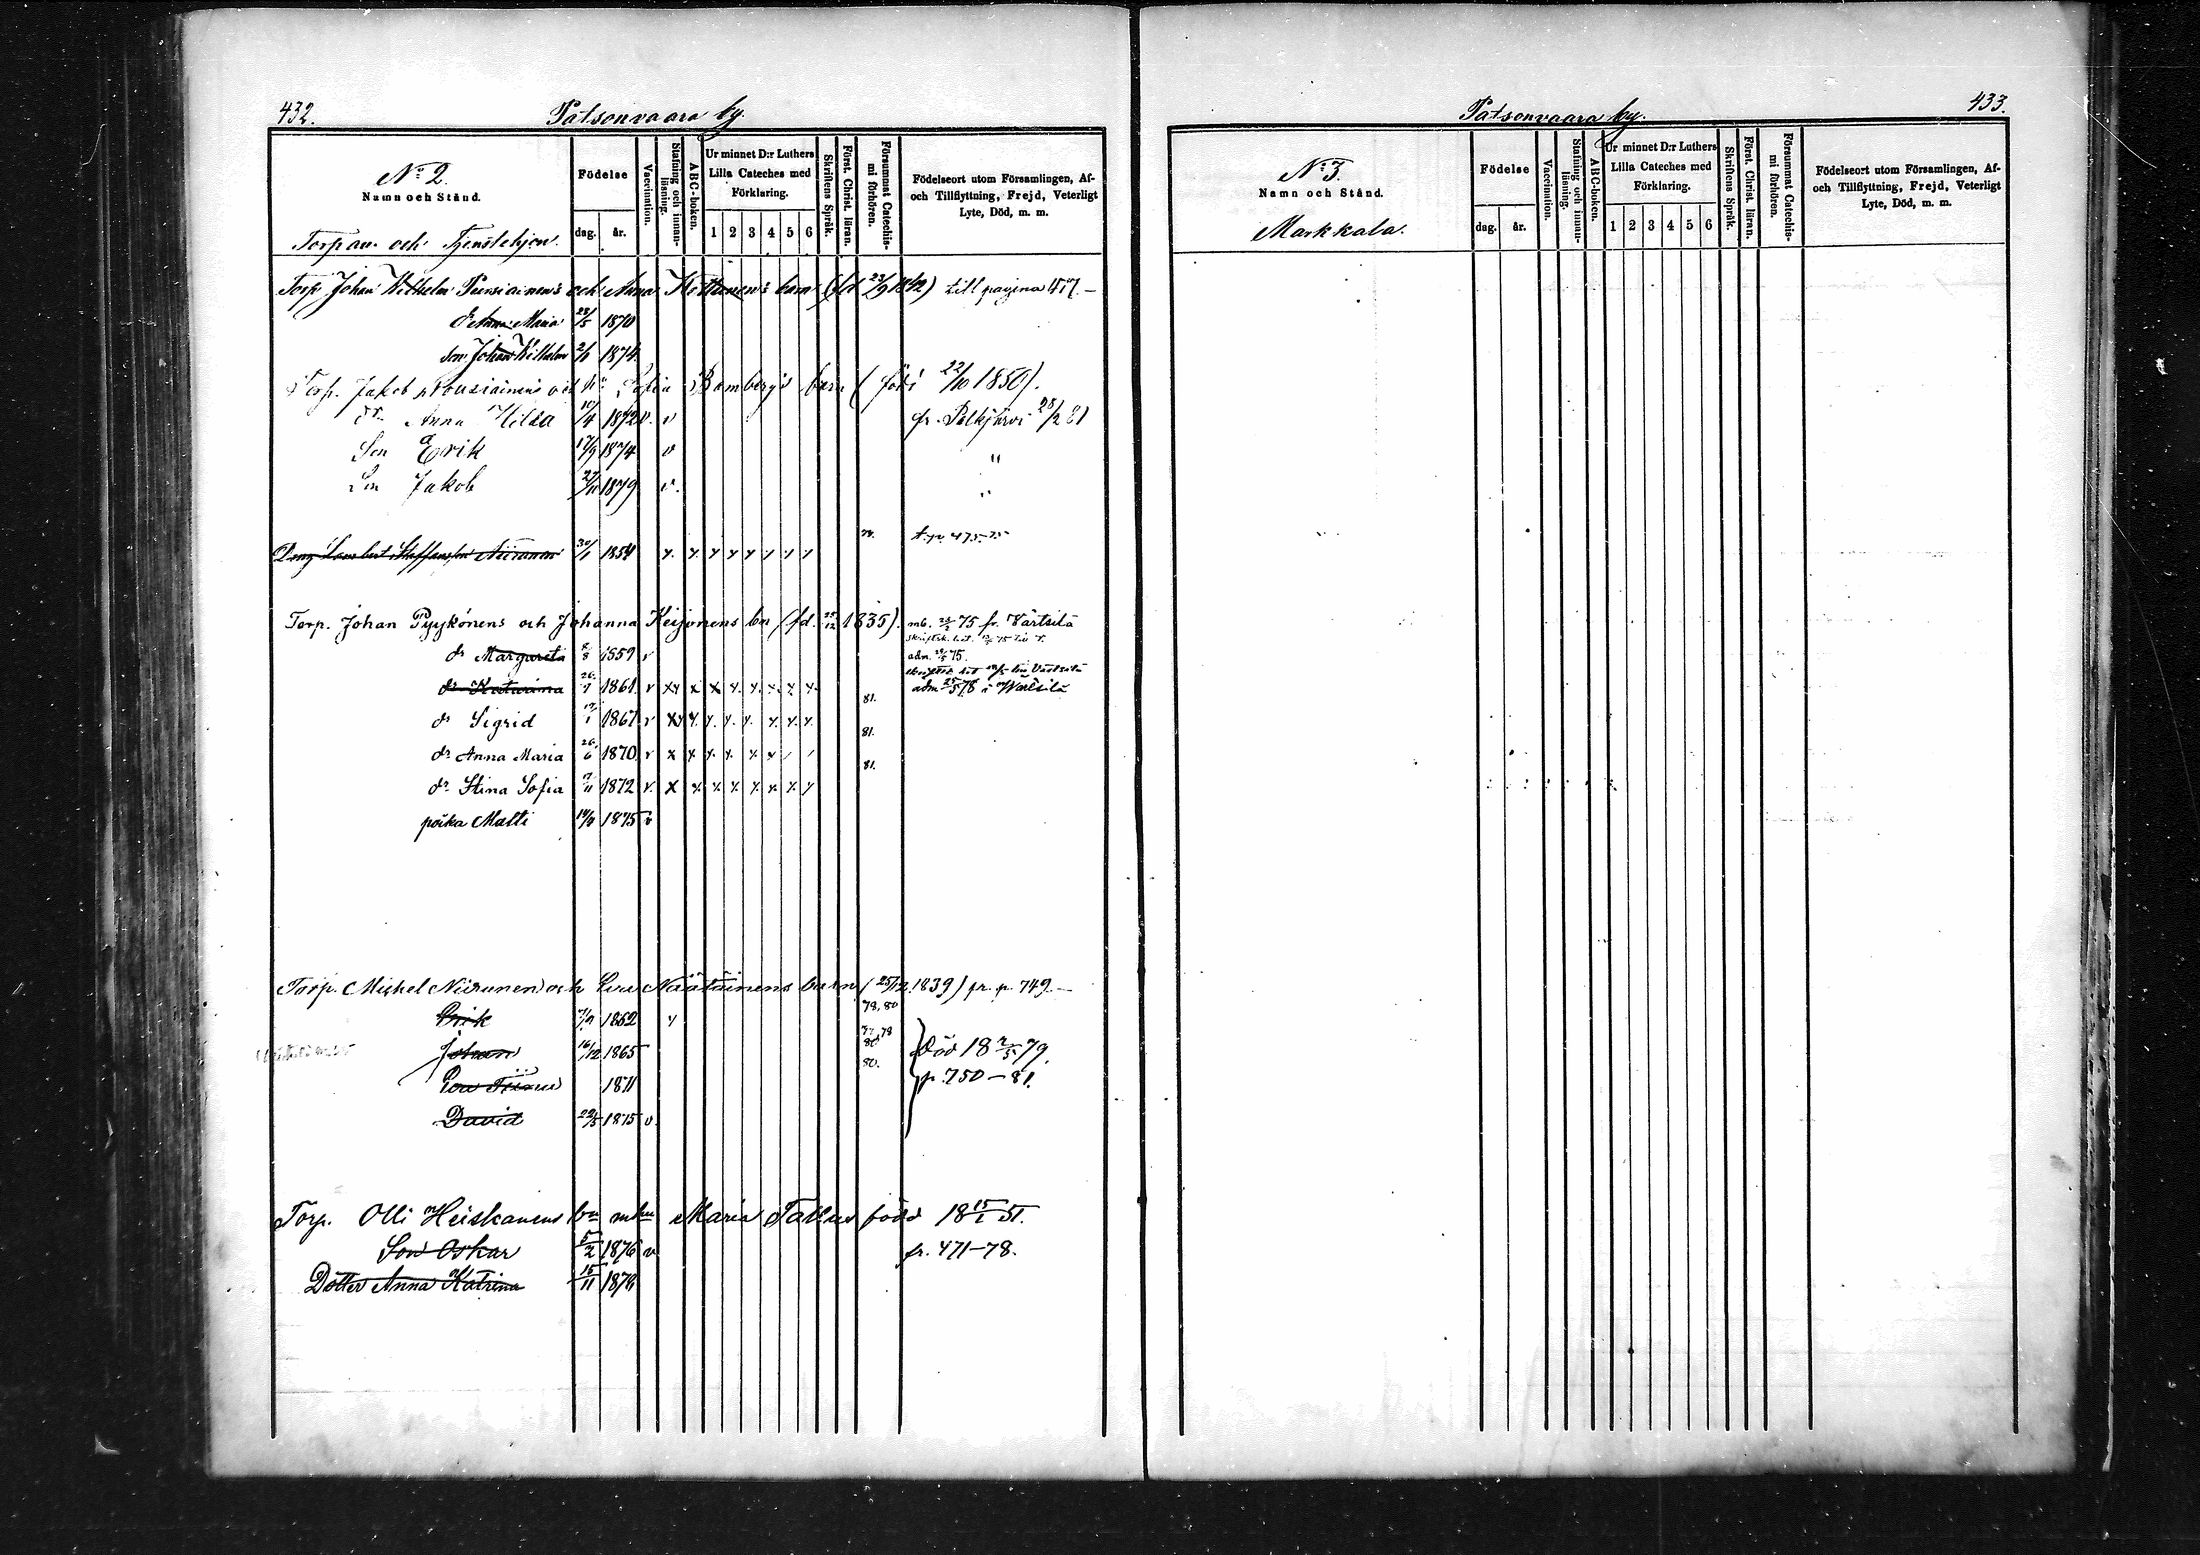 432.
Patsonvaara by.
No. 2.
Namn och Stånd.
Torpare och Tjenstehjon.
Födelse
dag. år.
Vaccination.
Stafning och innanläsning.
ABC-boken.
Ur minnet D:r Luthers Lilla Cateches med Förklaring.
1 2 3 4 5 6
Skriftens Språk.
Först. Christ. läran.
Försummat Catechismi förhören.
Födelseort utom Församlingen, Af- och Tillflyttning, Frejd, Veterligt Lyte, Död, m. m.
Torp. Johan Wilhelm och Anna barn (fd 23/9 1842) till pagina
dr Anna Maria 23/5 1870
Son Johan Wilhelm 2/1 1874.
Torp. Jakob Pousiainens och hu Sofia Bombergs barn (född 22/10 1850).
dr Anna Hilda 10/4 1872 v. v fr. Pälkjärvi 28/2 81
Son Erik 17/9 1874 v "
Son Jakob 27/11 1879 v. "
Staffansson Niiranen 30/1 1854 t. p. 475-75
Torp. Johan Pyykönens och Johanna Keijonens bn (fd. 25/12 1835). mb. 25/2 75 fr. Värtsilä
dr Margareta 8/8 1859 v adm. 75.
dr Katarina 26/7 1861 v adm 25/5 78 i Wärtsilä
dr Sigrid 1867 v 81.
dr Anna Maria 26/6 1870 v 81.
dr Stina Sofia 1872 v. 81.
poika Matti 1875 v
Torp. Michel Niiranen och Näätäinens barn (25/12 1839) fr. p. 749.
Erik 7/9 1862 78, 80
Johan 16/12 1865 77, 78 80 Död 18 2/5 79.
1871 80. p. 750-81.
David 22/5 1875 v
Torp. Olli Heiskanens bn m hu Maria född 18 15/1 51.
Son Oskar 5/2 1876 v fr. 471-78.
Dotter Anna Katrina 15/11 1879
433.
Patsonvaara by.
No. 3.
Namn och Stånd.
Markkala.
Födelse
dag. år.
Vaccination.
Stafning och innanläsning.
ABC-boken.
Ur minnet D:r Luthers Lilla Cateches med Förklaring.
1 2 3 4 5 6
Skriftens Språk.
Först. Christ. läran.
Försummat Catechismi förhören.
Födelseort utom Församlingen, Af- och Tillflyttning, Frejd, Veterligt Lyte, Död, m. m.